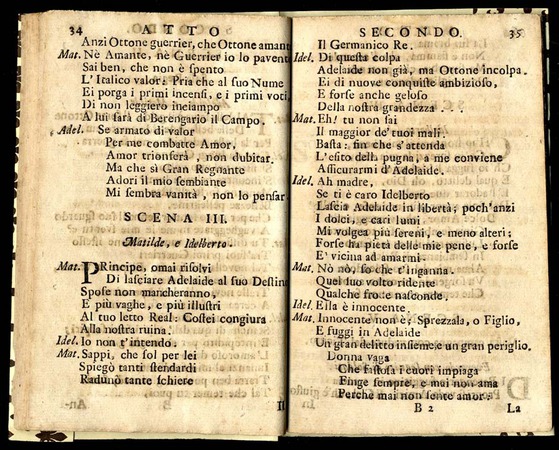 34 ATTO
Anzi Ottone guerrier, che Ottone amant
Mat. Nè Amante, nè Guerrier io lo pavent
Sai ben, che non è spento
L' Italico valor: Pria che al suo Nume
Ei porga i primi incensi, e i primi voti,
Di non leggiero inciampo
A lui sarà di Berengario il Campo.
Adel. Se armato di valor
Per me combatte Amor,
Amor trionferà, non dubitar.
Ma che sì Gran Regnante
Adori il mio sembiante
Mi sembra vanità, non lo pensar
SCENA III.
Matilde, e Idelberto.
Mat. PRincipe, omai risolvi
Di lasciare Adelaide al suo Destino
Spose non mancheranno,
E più vaghe, e più illustri
Al tuo letto Real: Costei congiura
Alla nostra ruina.
Idel. Io non t'intendo.
Mat. Sappi, che sol per lei
Spiegò tanti stendardi
Radunò tante schiere
Il
SECONDO. 35
Il Germanico Re.
Idel. Di questa colpa
Adelaide non già, ma Ottone incolpa.
Ei di nuove conquiste ambizioso,
E forse anche geloso
Della nostra grandezza . . .
Mat. Eh! tu non sai
Il maggior de' tuoi mali.
Basta: fin che s'attenda
L'esito della pugna, a me conviene
Assicurarmi d'Adelaide.
Idel. Ah madre,
Se ti è caro Idelberto
Lascia Adelaide in libertà; poch'anzi
I dolci, e cari lumi
Mi volgea più sereni, e meno alteri;
Forse ha pietà delle mie pene, e forse
E' vicina ad amarmi.
Mat. Nò nò, so che t'inganna.
Quel suo volto ridente
Qualche frode nasconde.
Idel. Ella è innocente.
Mat. Innocente non è; Sprezzala, o Figlio,
E fuggi in Adelaide
Un gran delitto insieme, e un gran periglio.
Donna vaga
Che fastosa i cuori impiaga
Finge sempre, e mai non ama
Perchè mai non sente amor;
B 2 La